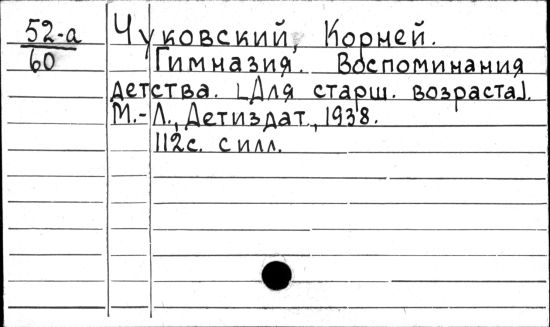 52-а
60
Чуковский, Корней.
Гимназия. Воспоминания
детства. [Для старш. возраста].
М.-Л., Детиздат., 1938.
112с. с илл.